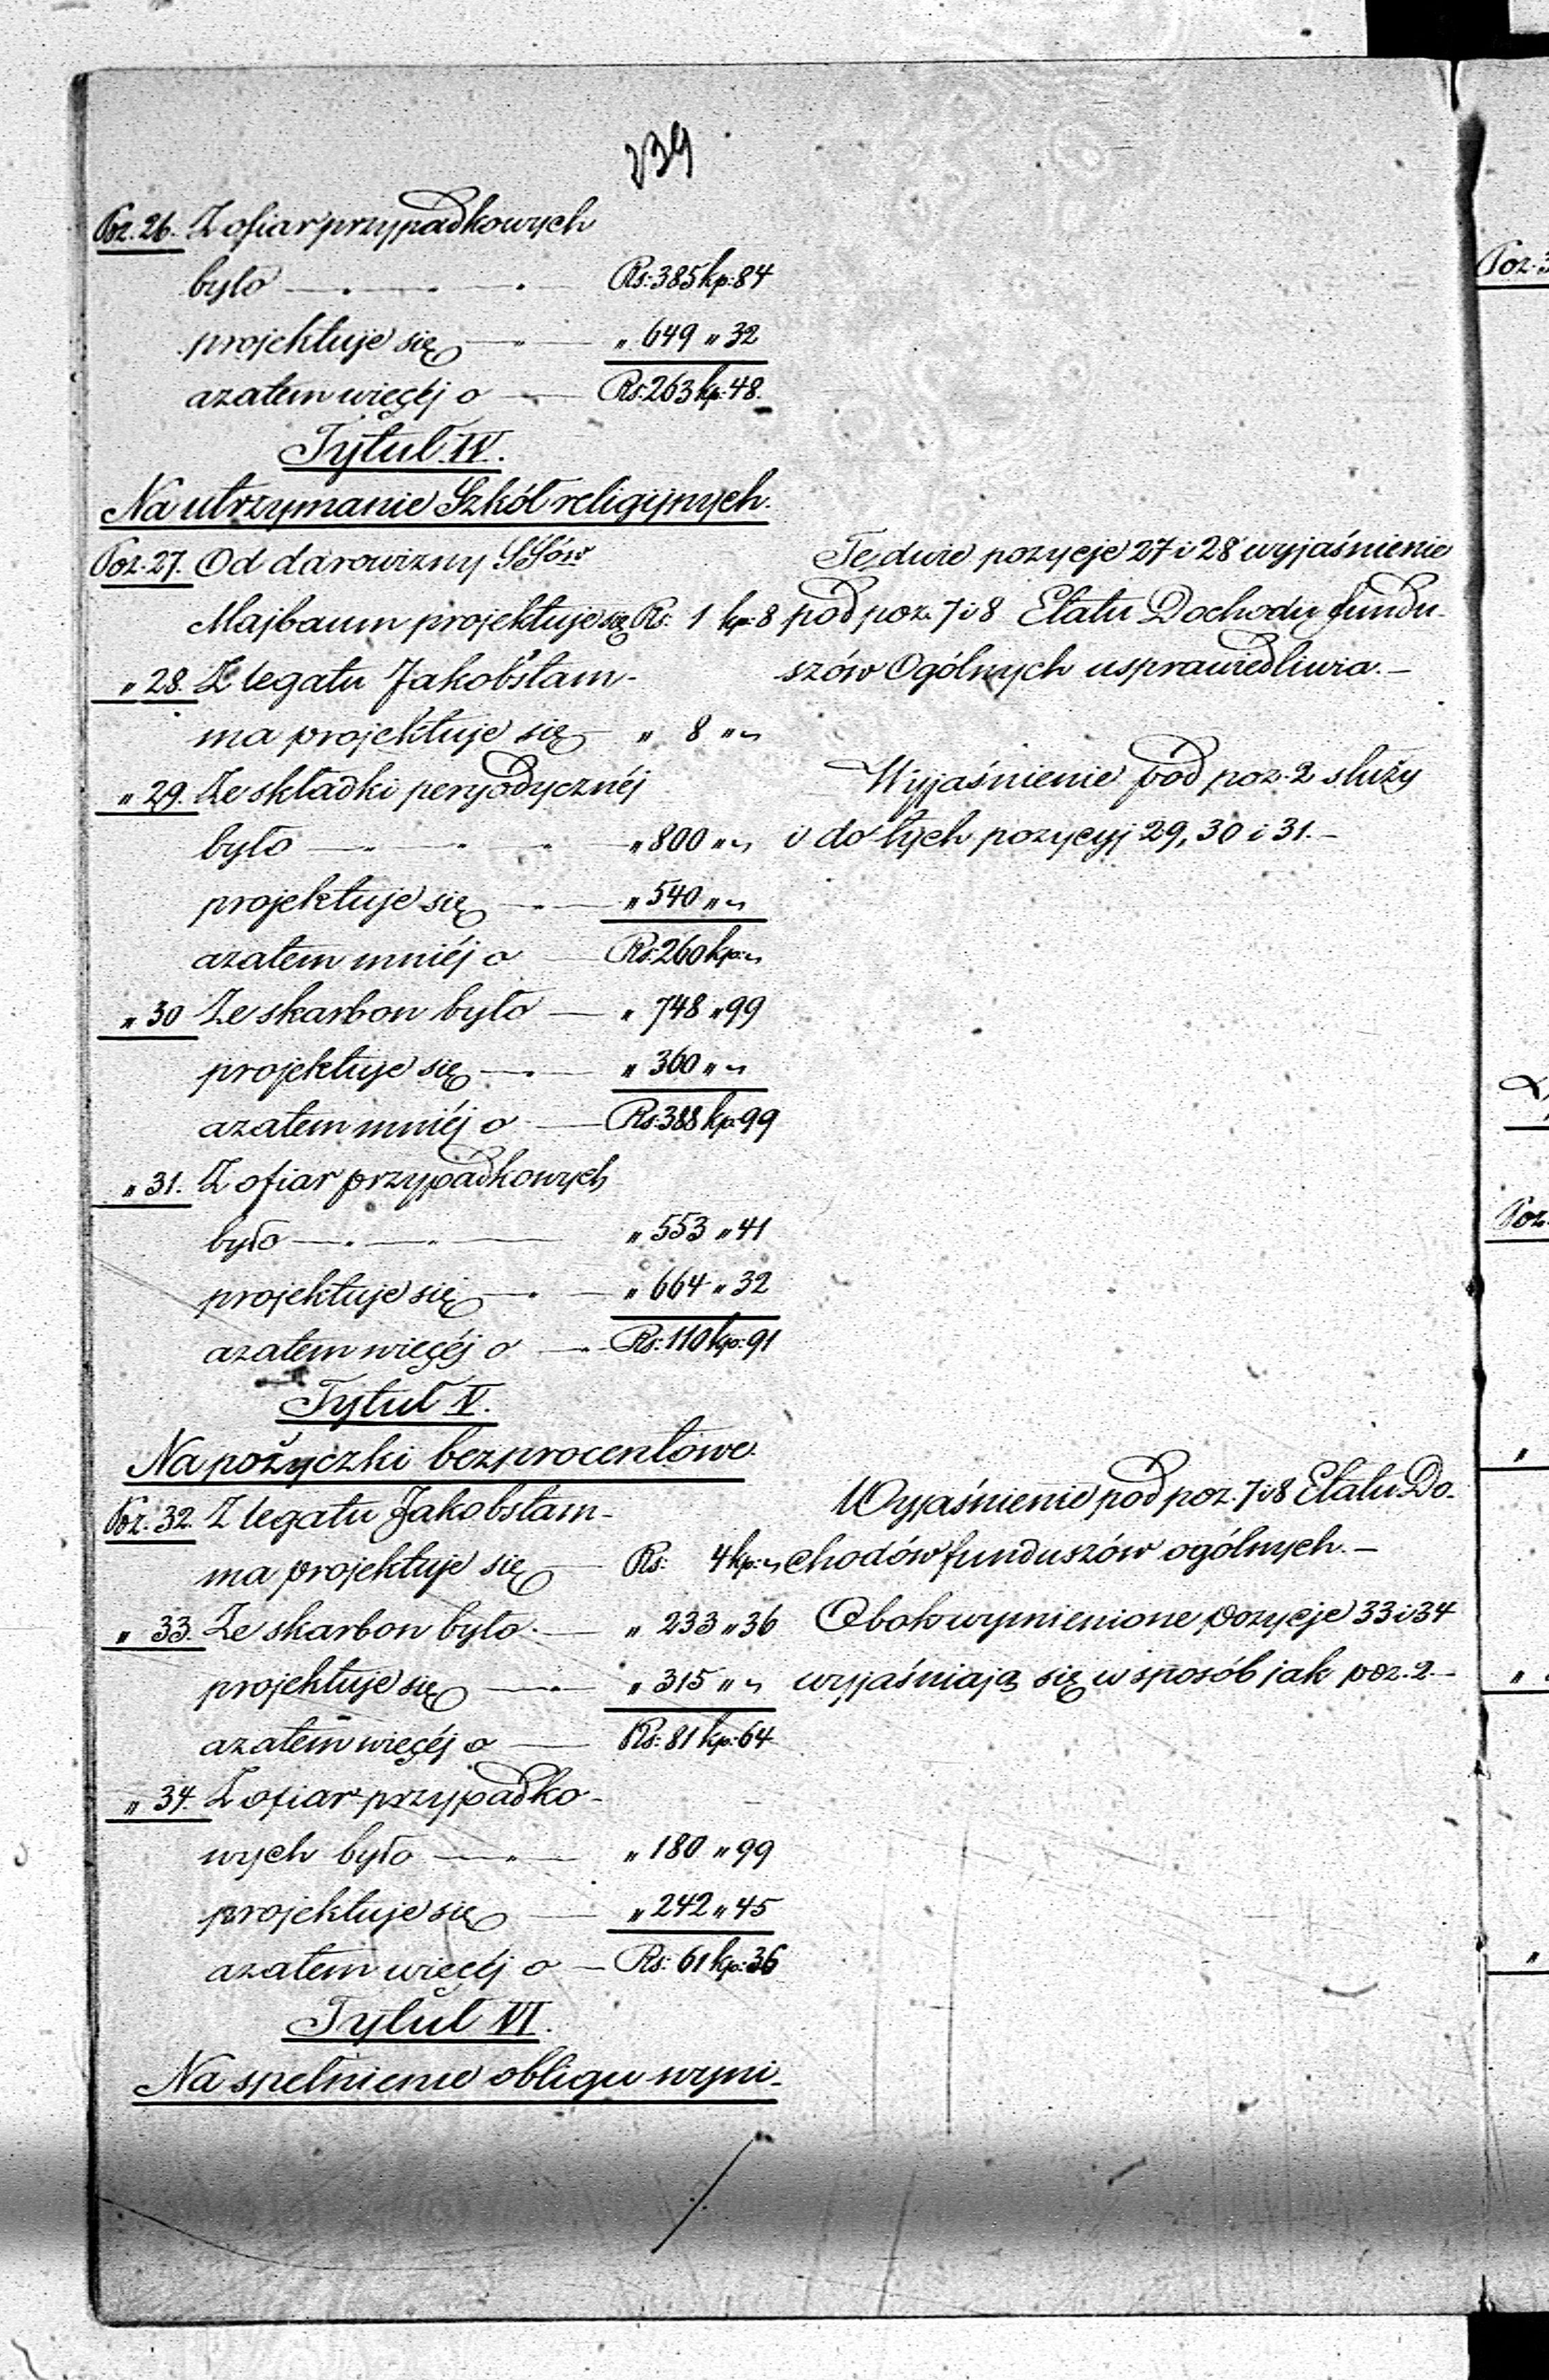 239
Poz. 26. Z ofiar przypadkowych
było — . — . — . Rs: 385 kp: 84
projektuje się — " — " 649 " 32
azatem więcéj o — Rs: 263 kp: 48.
Tytuł IV.
Na utrzymanie Szkół religijnych.
Poz. 27. Od darowizny SSów
Majbaum projektuje się Rs: 1 kp: 8
" 28. Z legatu Jakobstam-
ma projektuje się — " 8 " "
" 29. Ze składki peryodycznéj
było — " — " — " 800 " "
projektuje się — " — " 540 " "
azatem mniéj o — Rs: 260 kp: "
" 30 Ze skarbon było — " 748 " 99
projektuje się — . — " 360 " "
azatem mniéj o — Rs: 388 kp: 99
" 31. Z ofiar przypadkowych
było — . — " — " 553 " 41
projektuje się — . — " 664 " 32
azatem więcéj o — . — Rs: 110 kp: 91
Tytuł V.
Na pożyczki bezprocentowe.
Poz. 32. Z legatu Jakobstam-
ma projektuje się — Rs: 4 kp: "
" 33. Ze skarbon było. — " 233 " 36
projektuje się — . — " 315 " "
azatem więcéj o — Rs: 81 kp: 64
" 34. Z ofiar przypadko-
wych było — " — " 180 " 99
projektuje się — " 242 " 45
azatem więcéj o — Rs: 61 kp: 36
Tytuł VI.
Na spełnienie obligu wyni-
Te dwie pozycje 27 i 28 wyjaśnienie
pod poz. 7 i 8 Etatu Dochodu fundu-
szów Ogólnych usprawiedliwia. —
Wyjaśnienie pod poz. 2 służy
i do tych pozycyj 29, 30 i 31. —
Wyjaśnienie pod poz. 7 i 8 Etatu Do-
chodów funduszów ogólnych. —
Obok wymienione pozycje 33 i 34
wyjaśniają się w sposób jak poz. 2. —
Poz. 3
Poz.